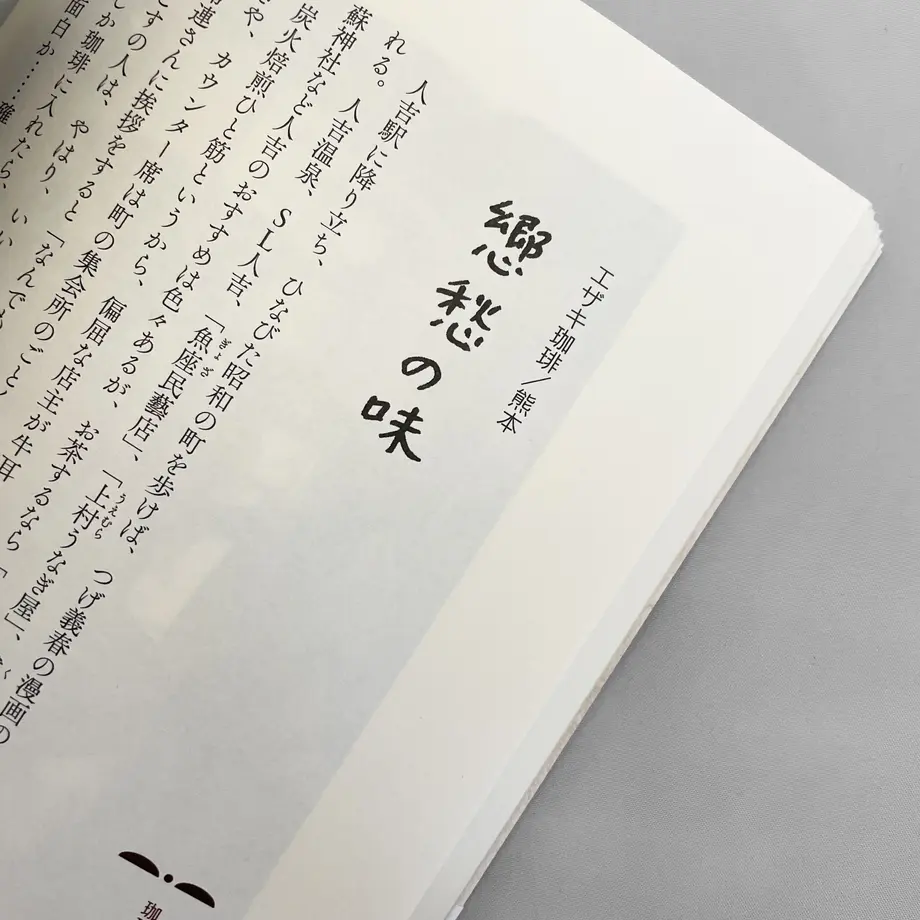 エザキ珈琲／熊本
郷愁の味
人吉駅に降り立ち、ひなびた昭和の町を歩けば、つげ義春の漫画の
れる。人吉温泉、SL人吉、「魚座民藝店」、「上村うなぎ屋」、
蘇神社など人吉のおすすめは色々あるが、お茶するなら「
炭火焙煎ひと筋というから、偏屈な店主が牛耳
や、カウンター席は町の集会所のごとく
連さんに挨拶をすると「なんで
すの人は、やはり、いい
か珈琲に入れたら、
面白か……
珈